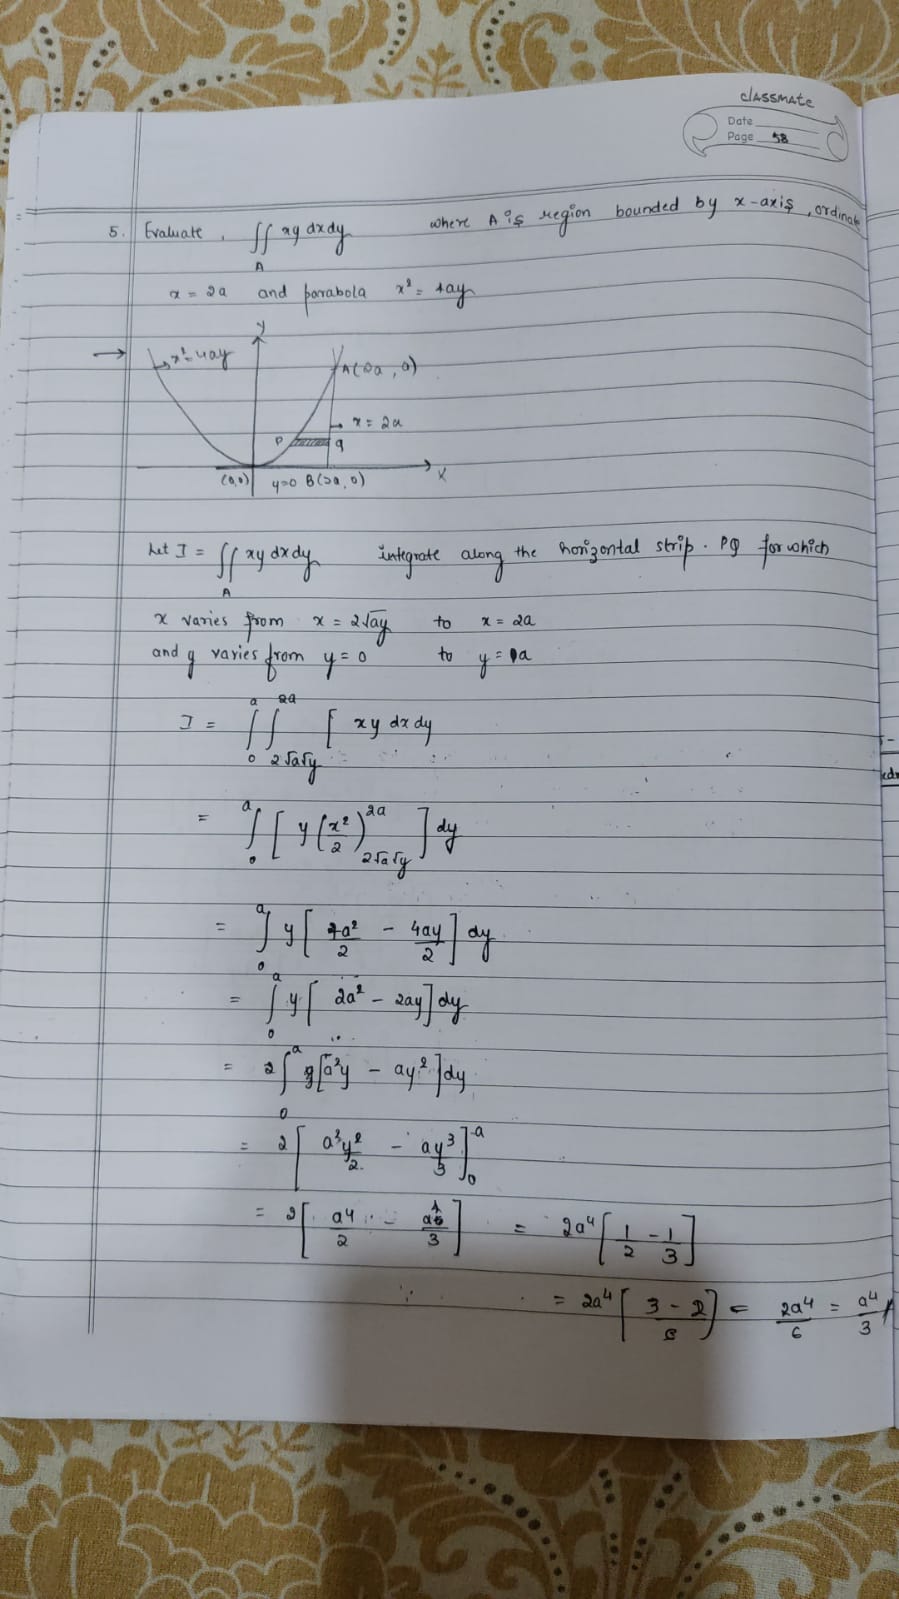 classmate
Date
Page 58
5. Evaluate, ∬_A xy dxdy where A is region bounded by x-axis, ordinate
x = 2a and parabola x² = 4ay
→ x² = 4ay
y
A(2a, a)
→ x = 2a
P q
(0,0) y=0 B(2a, 0) X
Let I = ∬_A xy dxdy integrate along the horizontal strip. PQ for which
x varies from x = 2√ay to x = 2a
and y varies from y = 0 to y = a
I = ∫_0^a ∫_{2√a√y}^{2a} [ xy dxdy
= ∫_0^a [ y (x²/2)_{2√a√y}^{2a} ] dy
= ∫_0^a y [ 4a²/2 - 4ay/2 ] dy
= ∫_0^a y [ 2a² - 2ay ] dy
= 2 ∫_0^a [ a²y - ay² ] dy
= 2 [ a²y²/2 - ay³/3 ]_0^a
= 2 [ a⁴/2 - a⁴/3 ] = 2a⁴ [ 1/2 - 1/3 ]
= 2a⁴ [ 3 - 2 / 6 ] = 2a⁴/6 = a⁴/3